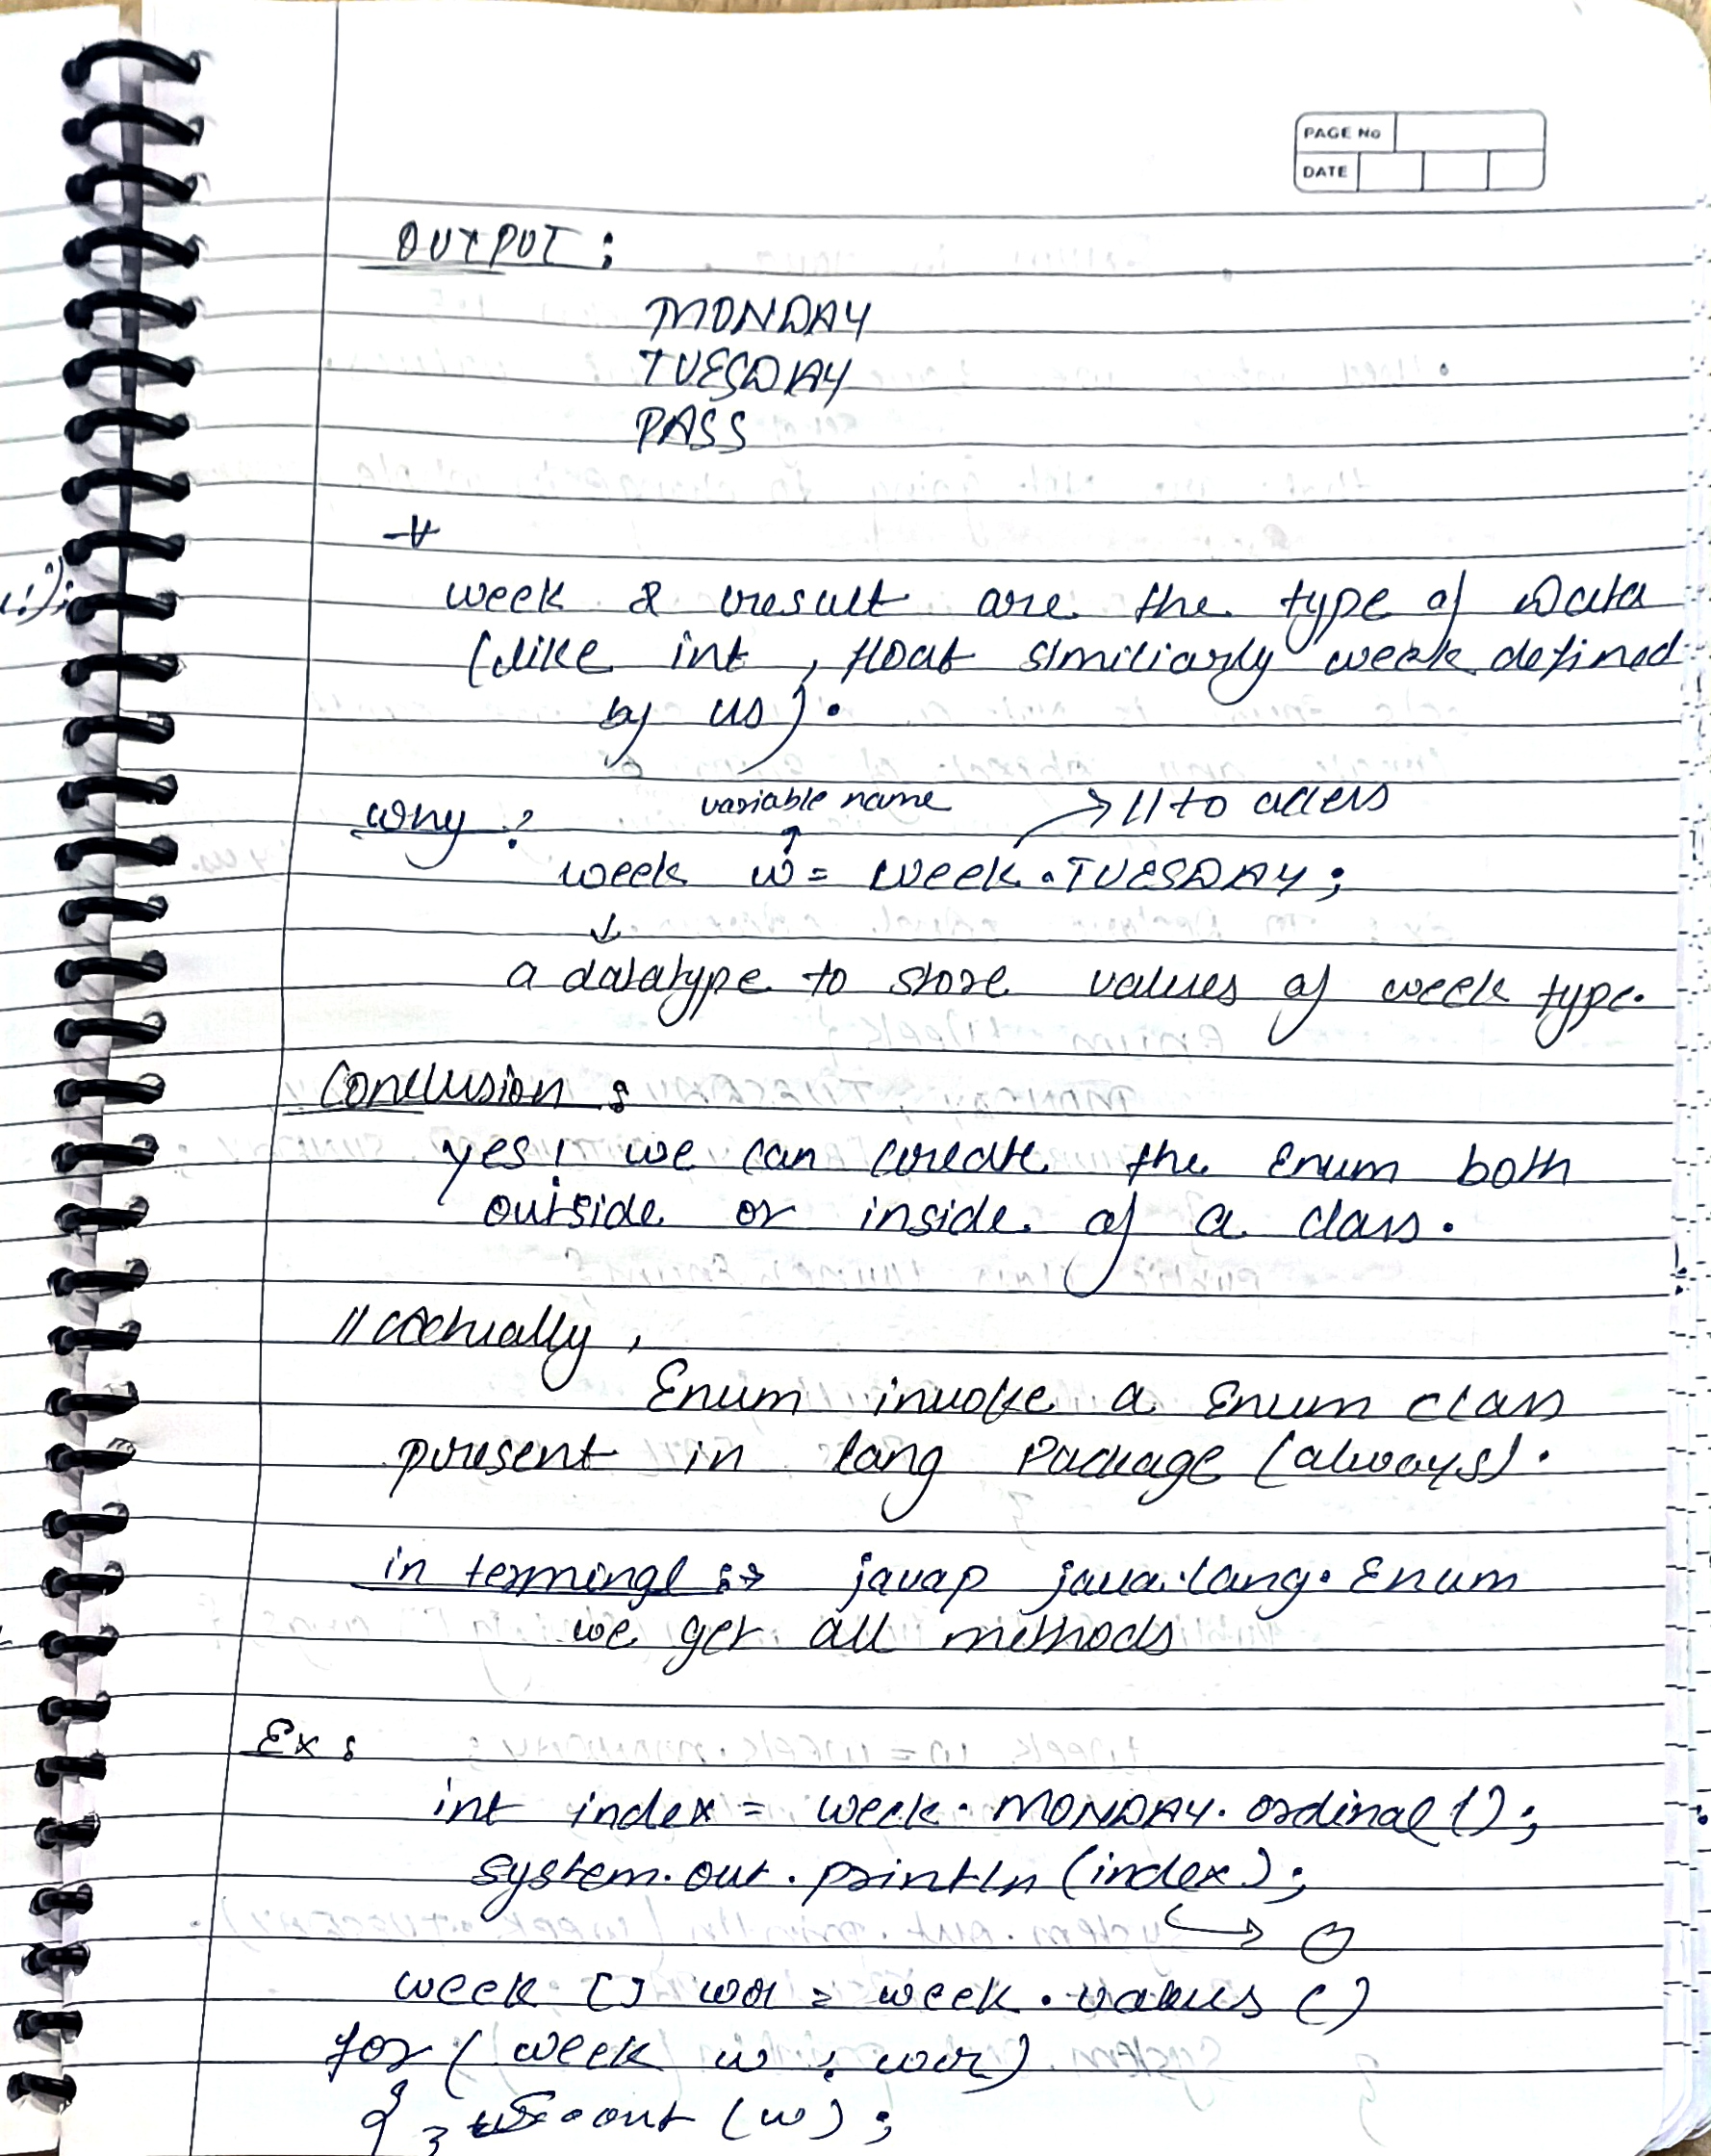 PAGE No
DATE
OUTPUT :
MONDAY
TUESDAY
PASS
week & result are the type of Data
(like int , float similiarly week defined
by us).
why ?
variable name
// to access
week w = week.TUESDAY ;
a datatype to store values of week type.
Conclusion :
yes! we can create the Enum both
outside or inside of a class.
// actually ,
Enum invoke a Enum class
present in lang Package (always).
in terminal :→ javap java.lang.Enum
we get all methods
Ex :
int index = week.MONDAY.ordinal ();
system.out.println (index);
→ 0
week [] wr = week.values ()
for ( week w : wr)
{ S.out (w) ;
}